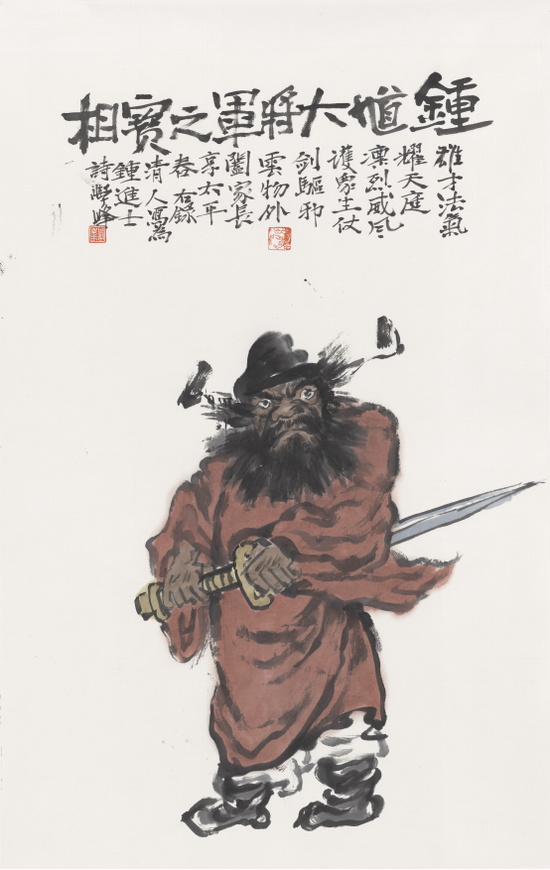 鍾馗大將軍之寶相
雄才法氣
耀天庭
凜烈威風
護眾生仗
劍驅邪
雲物外
闔家長
享太平
春右錄
清人寫為
鍾進士
詩